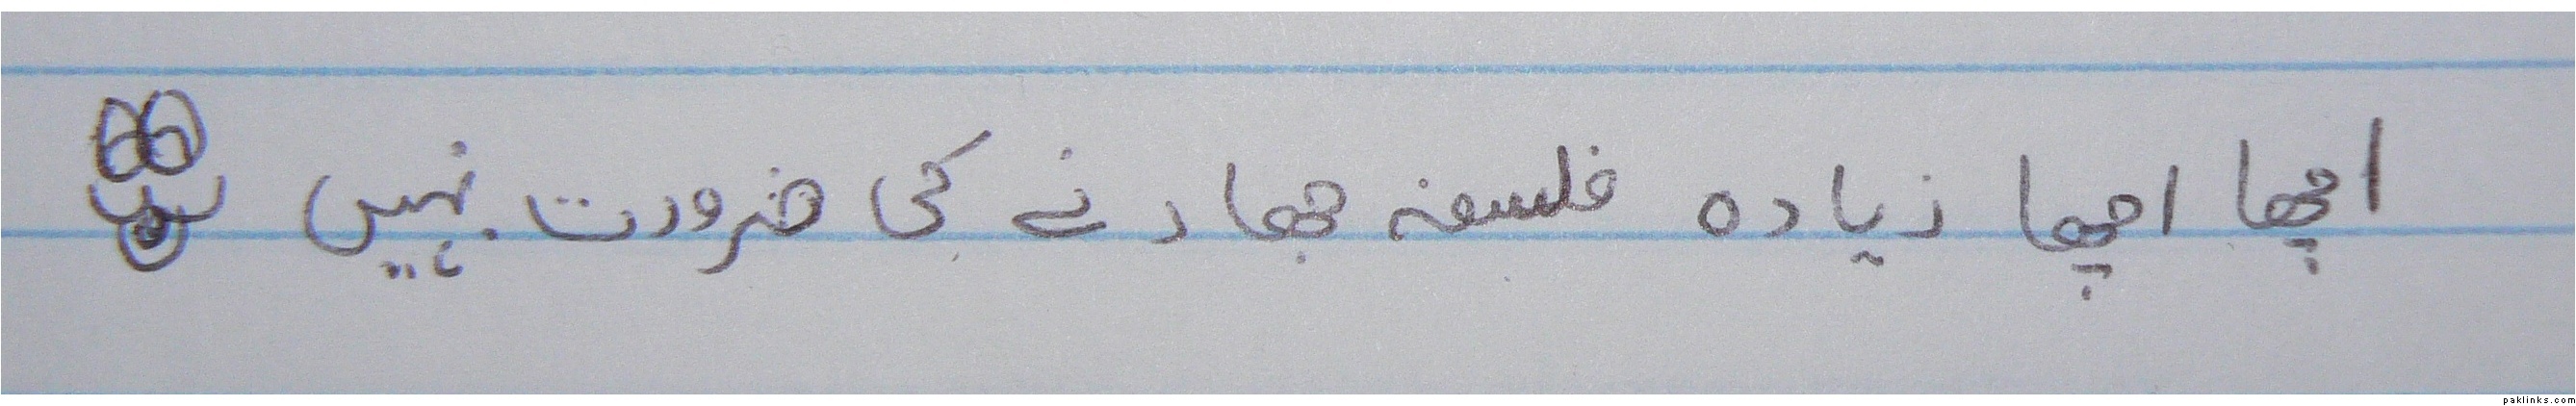 اچھا اچھا زیادہ فلسفہ جھادنے کی ضرورت نہیں
paklinks.com